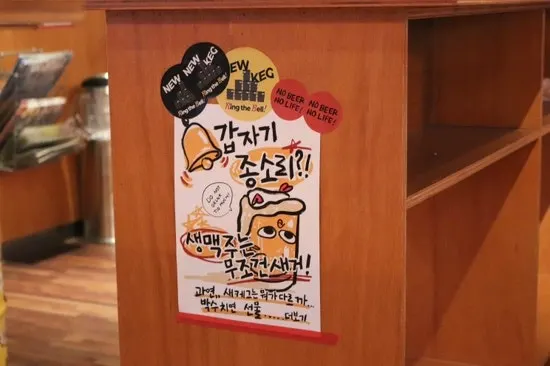 NEW NEW
KEG
Ring the Bell!
NEW
KEG
Ring the Bell!
NO BEER
NO LIFE!
NO BEER
NO LIFE!
갑자기
종소리?!
DO NOT
DRINK
생맥주는
무조건 새거!
과연,, 새 케그는 뭐가 다르까
박수치면 선물 ..... 더보기